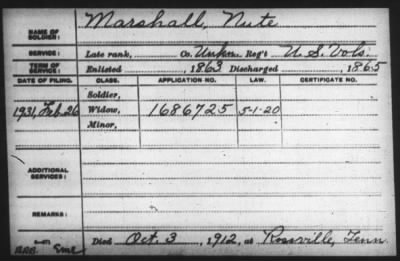 NAME OF SOLDIER: Marshall, Nute
SERVICE: Late rank, Co. Unkn. Reg't U. S. Vols.
TERM OF SERVICE: Enlisted , 1863 Discharged , 1865
DATE OF FILING. CLASS. APPLICATION NO. LAW. CERTIFICATE NO.
Soldier,
1931, Feb. 26 Widow, 1686725 5-1-20
Minor,
ADDITIONAL SERVICES:
REMARKS:
Died Oct. 3, 1912, at Rossville, Tenn.